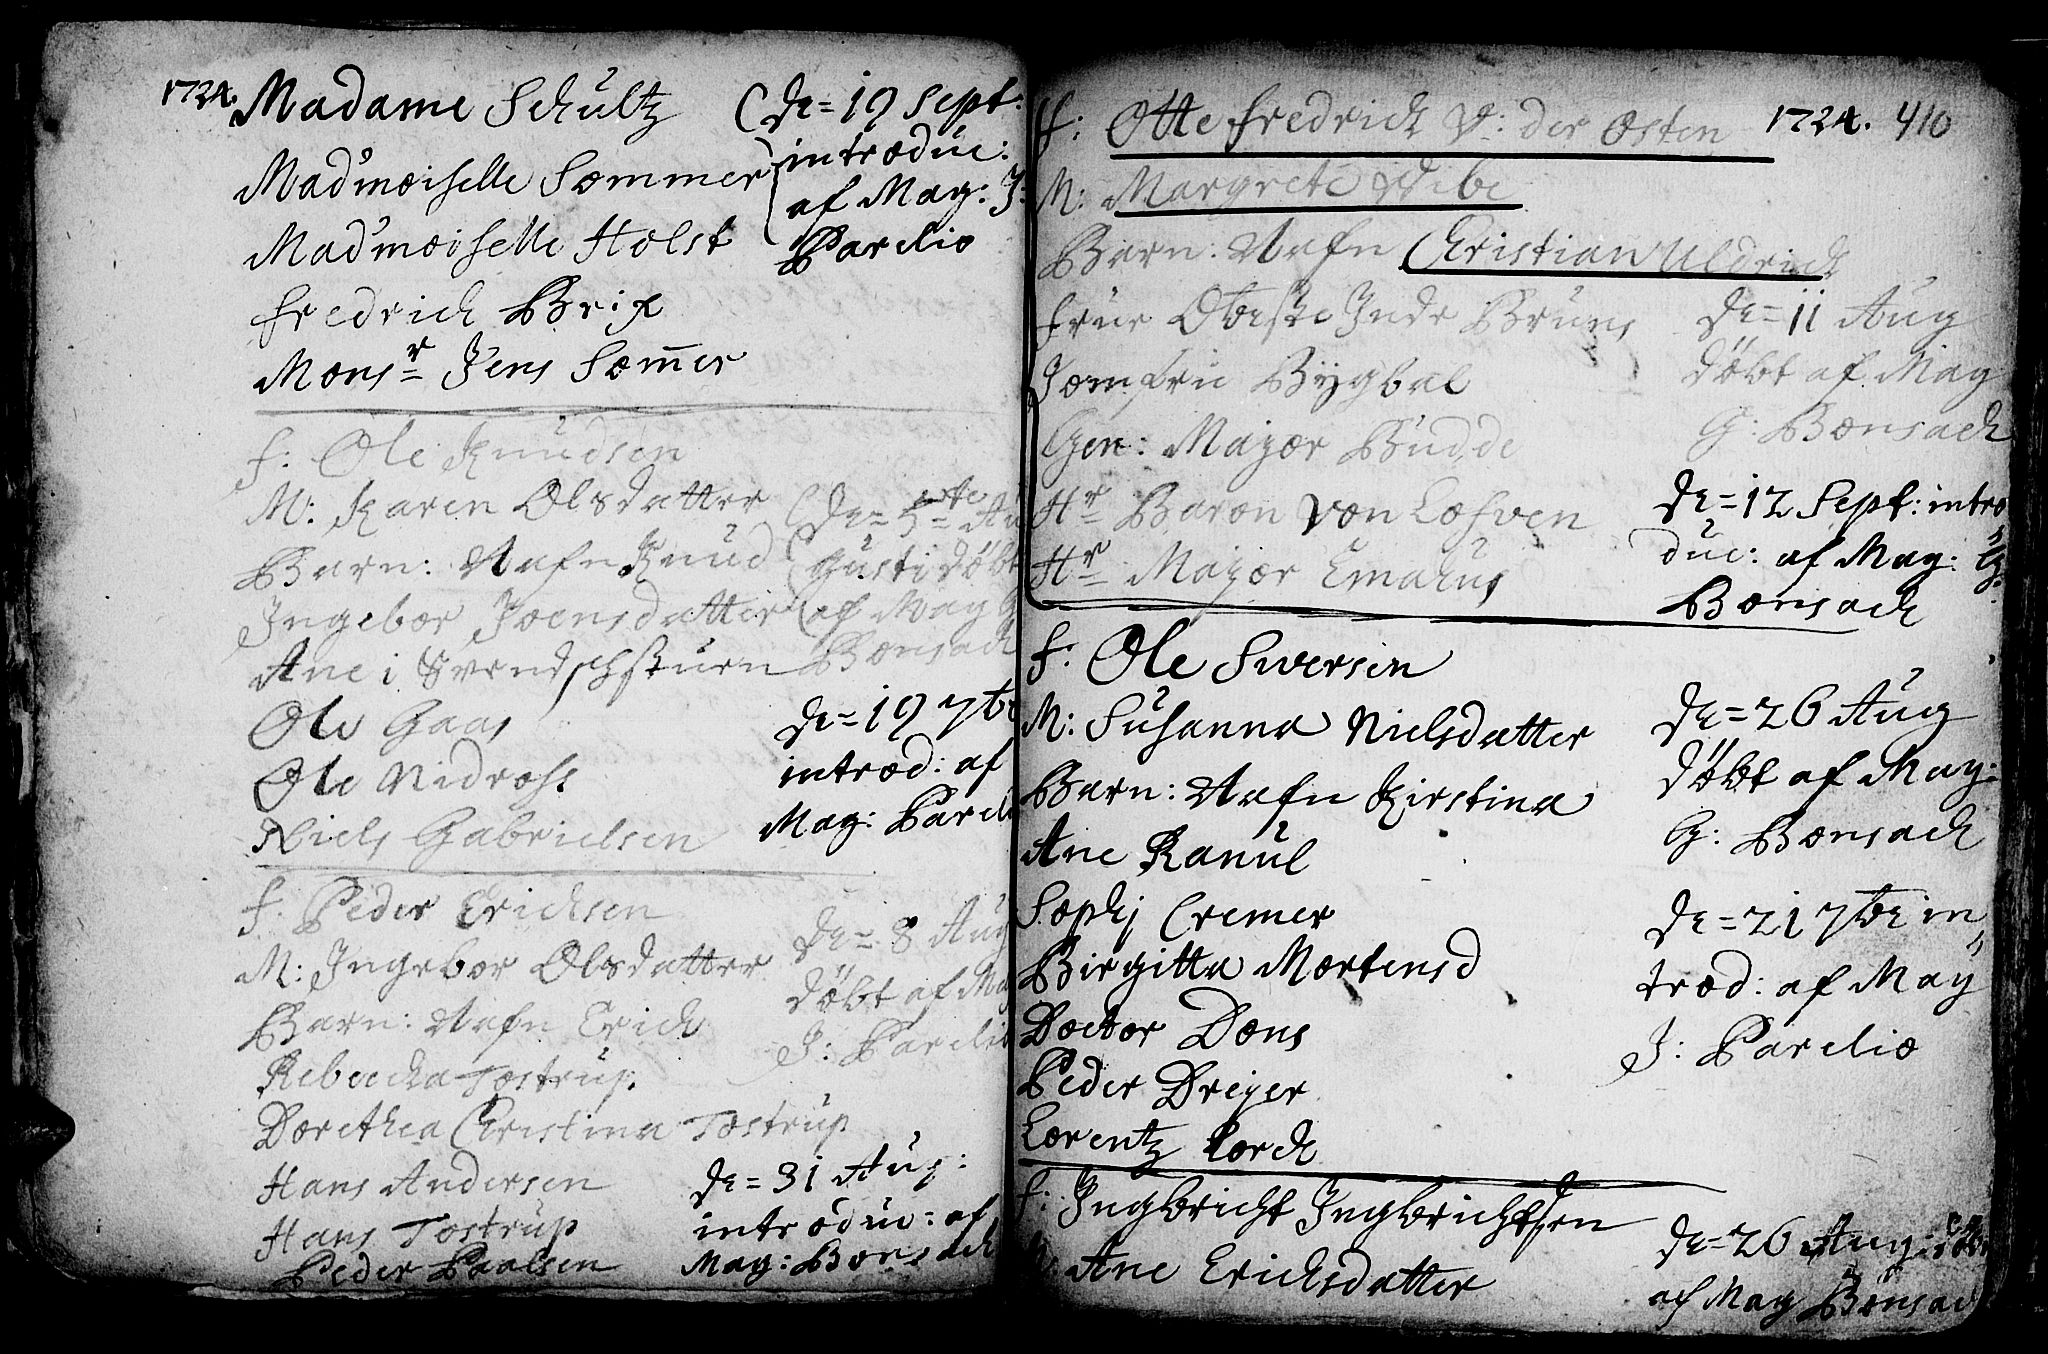 1724.
Madame Schultz
Mad'moiselle Sommer
Mad'moiselle Holst
Fredrich Brix
Mons.r Jens Som̄er
De= 19 Sept:
introduc:
af Mag: J:
Parelio
F: Ole Knudsen
M: Karen Olsdatter
Barn: Nafn Knud
Ingebor Joensdatter
Ane i
Ole Gaas
Ole Nidross
Niels Gabrielsen
De= 5te Au
gusti döbt
af Mag G
Bonsach
De= 19 7b
introd: af
Mag: Pareli
F: Peder Erichsen
M: Ingebor Olsdatter
Barn: Nafn Erich
Rebecka Tostrup.
Dorethea Christina Tostrup
Hans Andersen
Hans Tostrup
Peder Paalsen
De= 8 Aug
döbt af Mag
J: Parelio
De= 31 Aug:
introduc: af
Mag: Bonsach
1724. 410
F: Otte Fredrich V: der Osten
M: Margrete Vibe
Barn: Nafn Christian Uldrich
Frue Obeste Inde Bruns
Jomfru Bygbal
Gen: Major Budde
Hr Baron von Lofven
Hr Major Emahus
De= 11 Aug
döbt af Mag
G: Bonsach
De= 12 Sept: intro
duc: af Mag: G:
Bonsach
F: Ole Sversen
M: Susanna Nielsdatter
Barn: Nafn Kirstina
Ane Kanul
Sophj Cremer
Birgitta Mortensd
Doctor Dons
Peder Dreyer
Lorentz Lorch
De= 26 Aug
döbt af Mag:
G: Bonsach
De= 21 7br in
trod: af Mag
J: Parelio
F: Ingbricht Ingbrichtsen
M: Ane Erichsdatter
De= 26 Aug: döbt
af Mag Bonsach